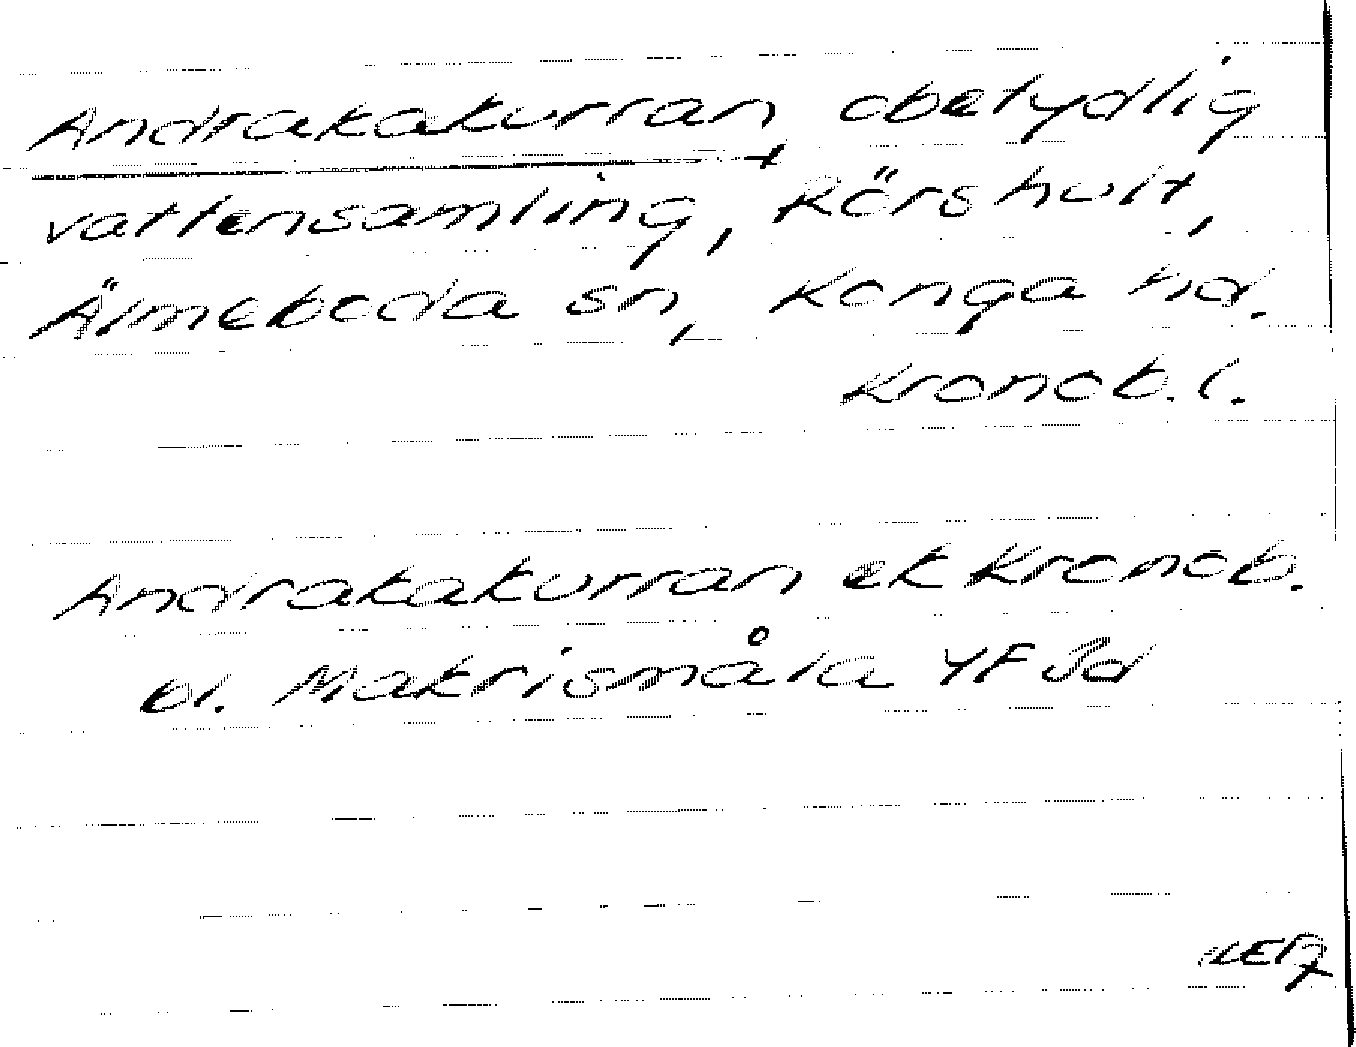 Andrakakurran, obetydlig
vattensamling, Rörshult,
Älmeboda sn, Konga hd.
Kronob. l.
Andrakakurran ek Kronob.
bl. Makrismåla